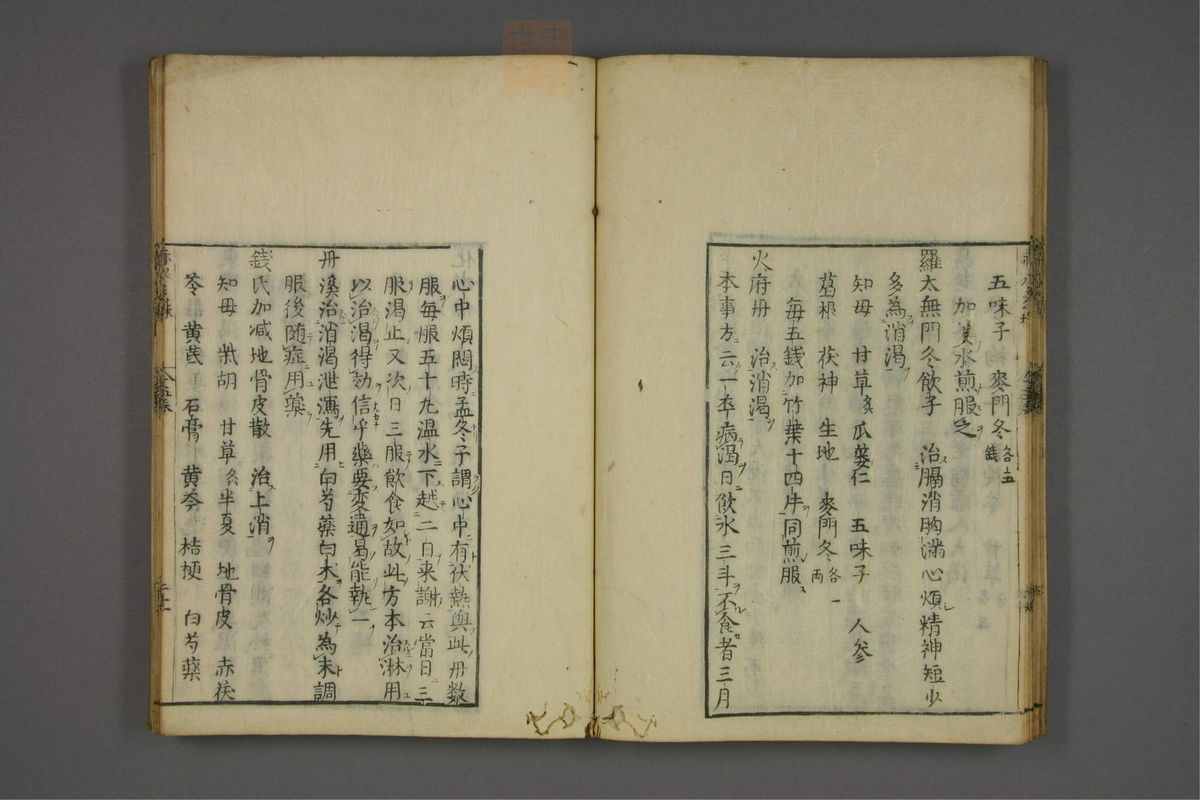 五味子 麥門冬各五錢
加姜水煎服之
羅太無門冬飲子 治膈消胸滿心煩精神短少
多為消渴
知毋 甘草炙 瓜蔞仁 五味子 人參
葛根 茯神 生地 麥門冬各一両
每五錢加竹葉十四片同煎服
火府丹 治消渴
本事方云一卒病渴日飲水三斗不食者三月
心中煩悶時孟冬予謂心中有伏熱與此丹数
服每服五十丸温水下越二日来謝云當日三
服渴止又次日三服飲食如故此方本治淋用
以治渴得効信乎藥要变通昜能執一
丹溪治消渴泄瀉先用白芍藥白朮各炒為末調
服後随症用藥
錢氏加减地骨皮散 治上消
知毋 柴胡 甘草炙 半夏 地骨皮 赤茯
苓 黄芪 石膏 黄芩 桔梗 白芍藥